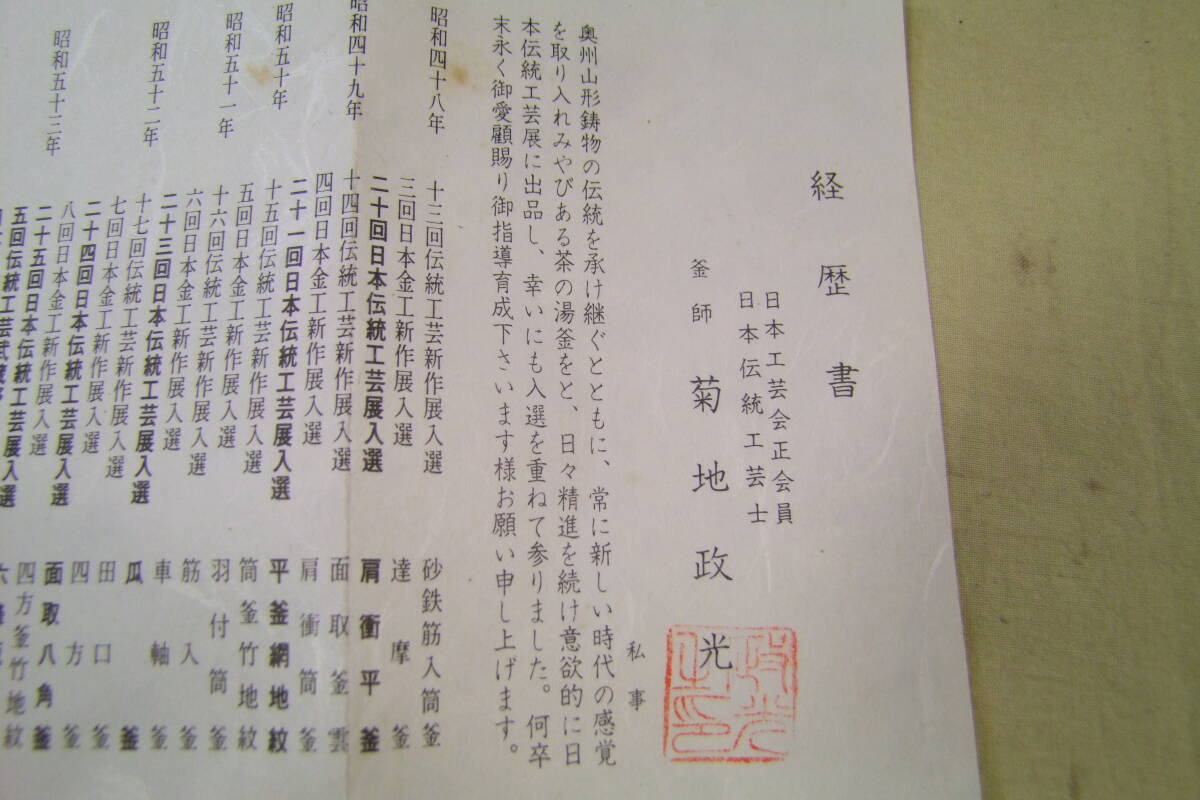 経歴書
日本工芸会正会員
日本伝統工芸士
釜師 菊地政光
私事
奥州山形鋳物の伝統を承け継ぐとともに、常に新しい時代の感覚
を取り入れみやびある茶の湯釜をと、日々精進を続け意欲的に日
本伝統工芸展に出品し、幸いにも入選を重ねて参りました。何卒
末永く御愛顧賜り御指導育成下さいます様お願い申し上げます。
昭和四十八年 十三回伝統工芸新作展入選 砂鉄筋入筒釜
三回日本金工新作展入選 達摩釜
二十回日本伝統工芸展入選 肩衝平釜
昭和四十九年 十四回伝統工芸新作展入選 面取釜雲
四回日本金工新作展入選 肩衝筒釜
二十一回日本伝統工芸展入選 平釜網地紋
昭和五十年 十五回伝統工芸新作展入選 筒釜竹地紋
五回日本金工新作展入選 羽付筒釜
昭和五十一年 十六回伝統工芸新作展入選 筋入釜
六回日本金工新作展入選 車軸釜
二十三回日本伝統工芸展入選 瓜釜
昭和五十二年 十七回伝統工芸新作展入選 田口釜
七回日本金工新作展入選 四方釜
二十四回日本伝統工芸展入選 面取八角釜
昭和五十三年 八回日本金工新作展入選 四方釜竹地紋
二十五回日本伝統工芸展入選
五回伝統工芸武蔵野展入選